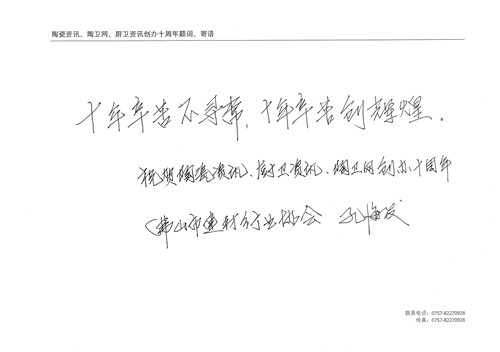 陶瓷资讯、陶卫网、厨卫资讯创办十周年题词、寄语
十年辛苦不寻常，十年辛苦创辉煌。
祝贺陶瓷资讯、厨卫资讯、陶卫网创办十周年
佛山市建材行业协会 孔海发
联系电话：0757-82270928
传真：0757-82270928